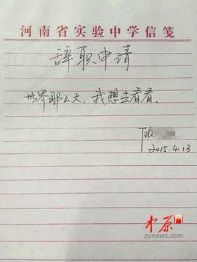 河南省实验中学信笺
辞职申请
世界那么大，我想去看看。
2015.4.13
中原
zynews.com